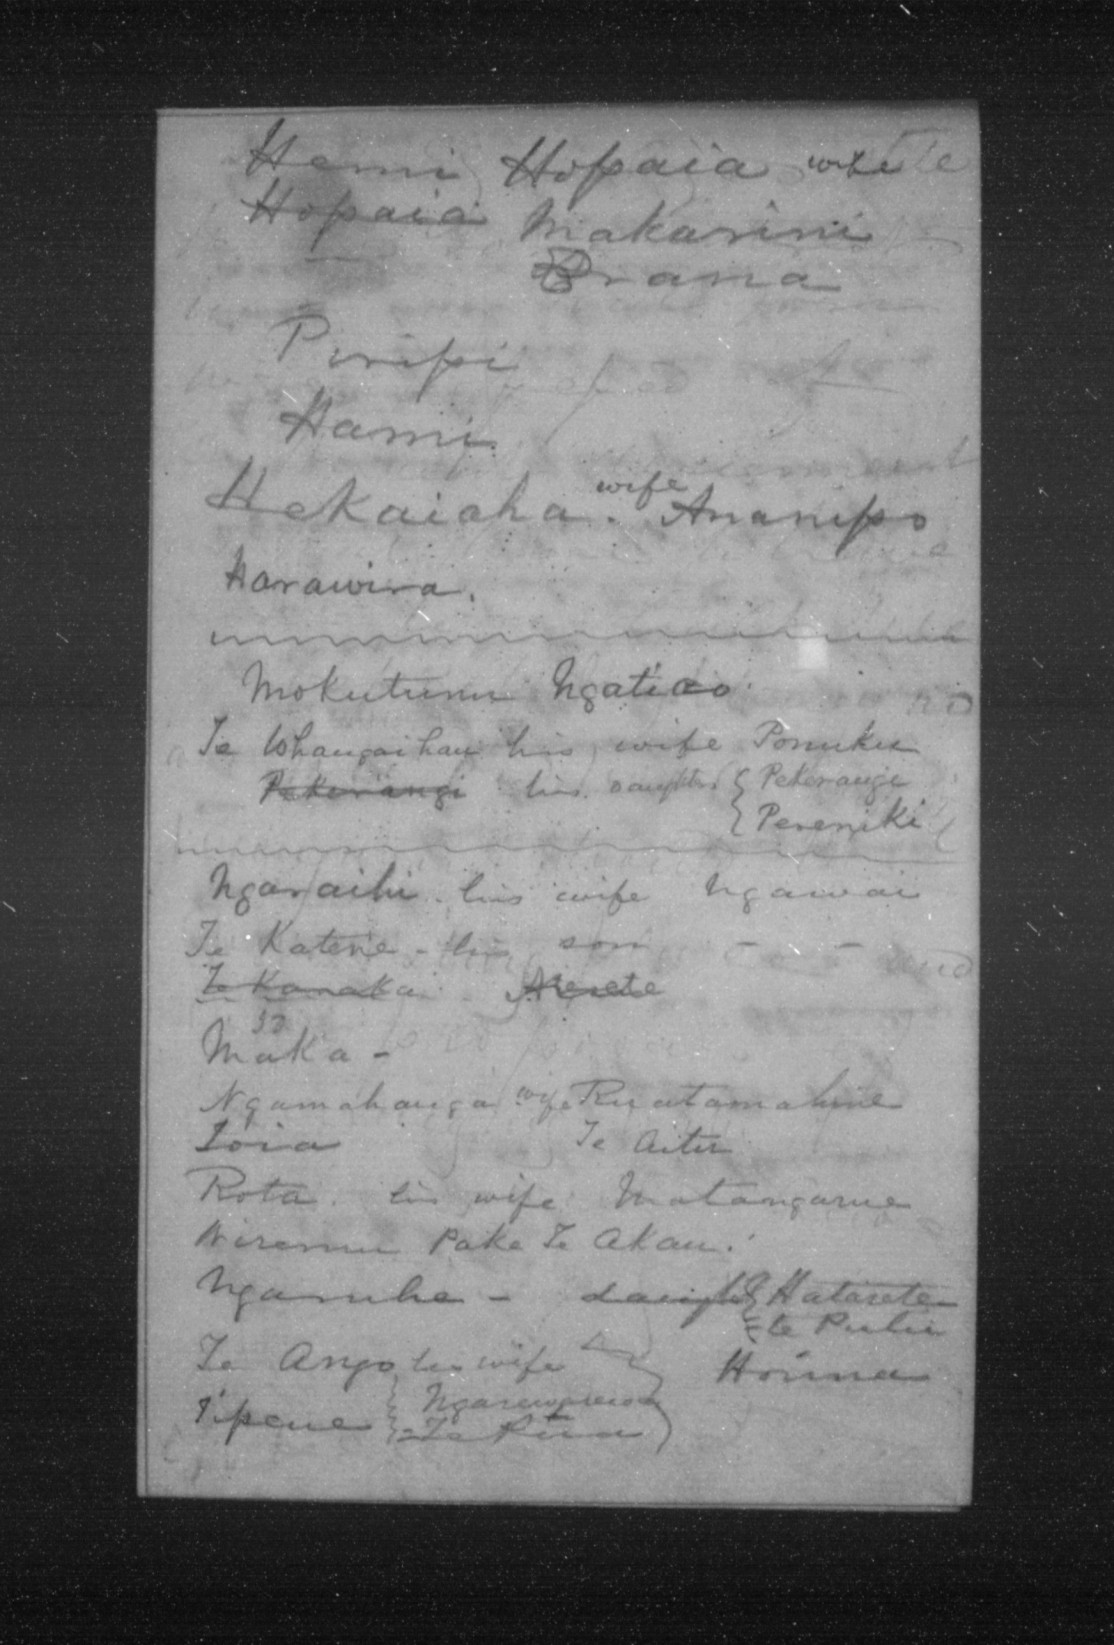 Hemi Hopaia wife
Hopaia Makarini
Prana
Piripi
Hami
wife
Hekaiaha. Ananipo
Harawira.
Mokuturu Ngatiao
Te Whangaihau his wife Ponuku
Pekerangi his daughters { Pekerangi
{ Pereniki
Ngaraihi his wife Ngawai
Te Katene - his son - -
Te Kanakai
Maka -
Ngamahanga wife Ruatamahine
Ioia Te Aitu
Rota his wife Matangarue
Wiremu Pake Te Akau.
Ngaruhe - daught { Hatarete
te Puhu
Te Ango his wife
Tipene { Te Rua